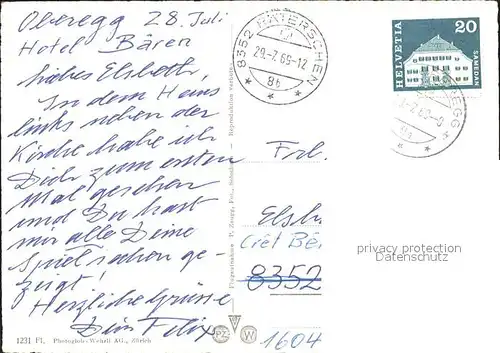 Oberegg 28. Juli
Hotel Bären
liebes Elsbeth,
In dem Haus
links neben der
Kirche habe ich
Dich zum ersten
Mal gesehen
und Du hast
mir alle Deine
Spielsachen ge-
zeigt!
Herzliche Grüsse
Dein Felix
1231 Fl. Photoglob-Wehrli AG., Zürich
Reproduktion verboten
Flugaufnahme
8352 RÄTERSCHEN
29.-7.69-12
8b
HELVETIA
20
SAMEDAN
EGG
Frl.
Elsb
8352
1604
PZ
W
privacy protection
Datenschutz